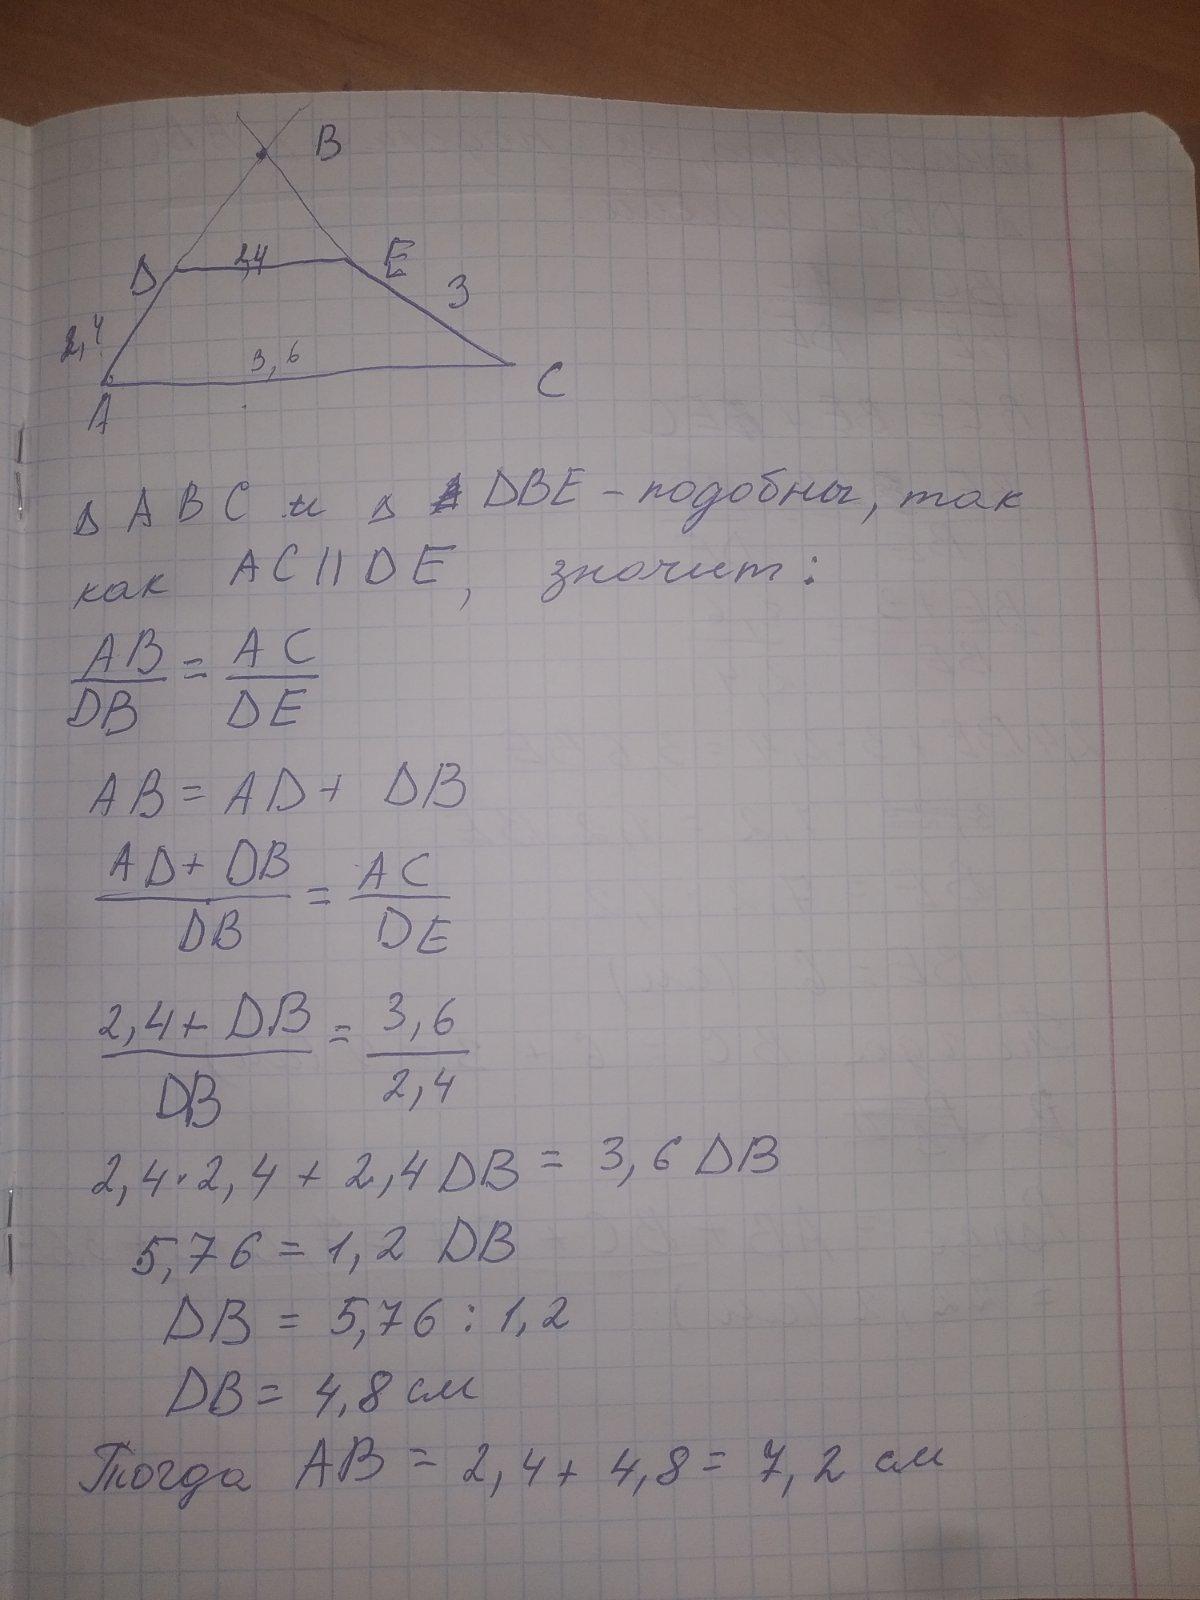 B
D 2,4 E
3
2,4
3,6
A
C
Δ ABC и Δ DBE - подобны, так
как AC || DE, значит:
AB/DB = AC/DE
AB = AD + DB
AD + DB/DB = AC/DE
2,4 + DB/DB = 3,6/2,4
2,4 · 2,4 + 2,4 DB = 3,6 DB
5,76 = 1,2 DB
DB = 5,76 : 1,2
DB = 4,8 см
Тогда AB = 2,4 + 4,8 = 7,2 см